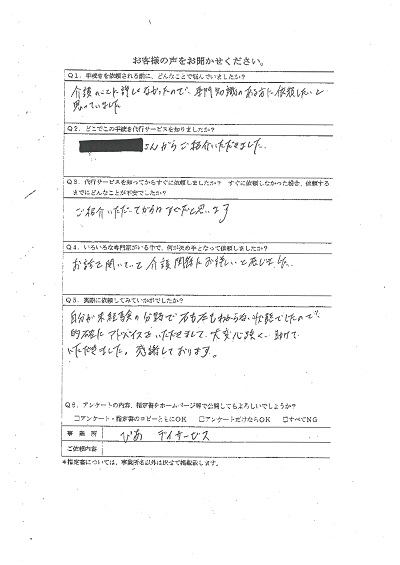 お客様の声をお聞かせください。
Q1．手続きを依頼される前に、どんなことで悩んでいましたか？
介護のことに詳しくなかったので、専門知識のある方に依頼したいと
思っていました
Q2．どこでこの手続き代行サービスを知りましたか？
さんからご紹介いただきました。
Q3．代行サービスを知ってからすぐに依頼しましたか？ すぐに依頼しなかった場合、依頼する
までにどんなことが不安でしたか？
ご紹介いただいてからすぐだと思います
Q4．いろいろな専門家がいる中で、何が決め手となって依頼しましたか？
お話を聞いていて介護関係にお詳しいと感じました。
Q5．実際に依頼してみていかがでしたか？
自分が未経験の分野で右も左もわからない状態でしたので、
的確にアドバイスをいただきまして、大変心強く、助けて
いただきました。感謝しております。
Q6．アンケートの内容、指定書をホームページ等で公開してもよろしいでしょうか？
□アンケート・指定書のコピーともにOK □アンケートだけならOK □すべてNG
事業所 ぴあ デイサービス
ご依頼内容
＊指定書については、事業所名以外は伏せて掲載致します。